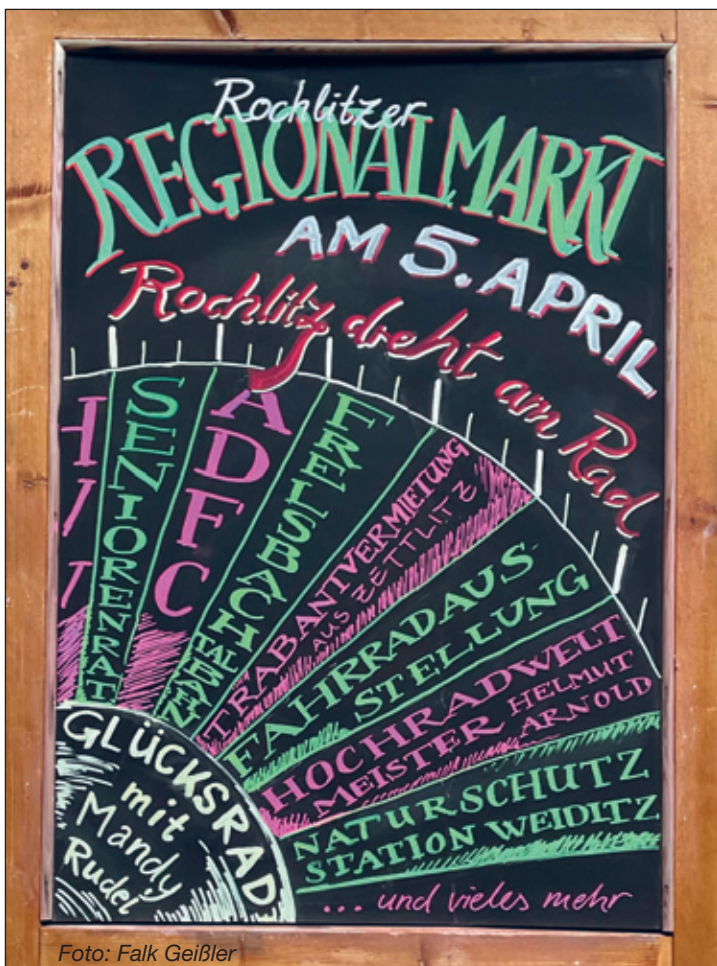 Rochlitzer
REGIONALMARKT
AM 5. APRIL
Rochlitz dreht am Rad
SENIORENRAT
ADFC
FRELSBACH
TAL
BAHN
TRABANTVERMIETUNG
AUS ZETTLITZ
FAHRRADAUS-
STELLUNG
HOCHRADWELT
MEISTER HELMUT
ARNOLD
NATURSCHUTZ
STATION WEIDITZ
... und vieles mehr
GLÜCKSRAD
mit
Mandy
Rudel
Foto: Falk Geißler